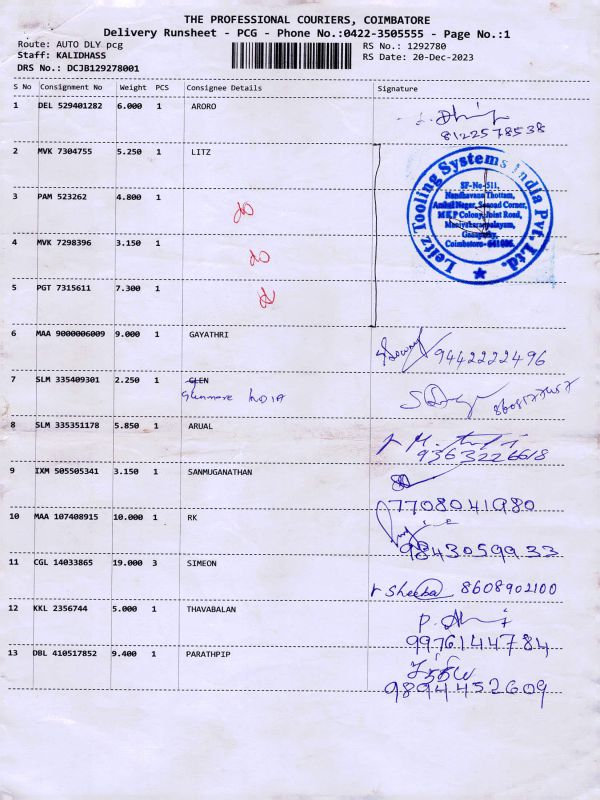 THE PROFESSIONAL COURIERS, COIMBATORE
Delivery Runsheet - PCG - Phone No.:0422-3505555 - Page No.:1
Route: AUTO DLY pcg
Staff: KALIDHASS
DRS No.: DCJB129278001
RS No.: 1292780
RS Date: 20-Dec-2023
S No Consignment No Weight PCS Consignee Details Signature
1 DEL 529401282 6.000 1 ARORO
8122578538
2 MVK 7304755 5.250 1 LITZ
Leitz Tooling Systems India Pvt. Ltd.
SF-No-511,
Nandhavana Thottam,
Ambal Nagar, Second Corner,
M K P Colony, Joint Road,
Coimbatore-
3 PAM 523262 4.800 1
4 MVK 7298396 3.150 1
5 PGT 7315611 7.300 1
6 MAA 9000006009 9.000 1 GAYATHRI
9442222496
7 SLM 335409301 2.250 1 GLEN
Glenmore INDIA
8 SLM 335351178 5.850 1 ARUAL
9363226618
9 IXM 505505341 3.150 1 SANMUGANATHAN
7708041980
10 MAA 107408915 10.000 1 RK
9843059933
11 CGL 14033865 19.000 3 SIMEON
Sheeba 8608902100
12 KKL 2356744 5.000 1 THAVABALAN
9976144784
13 DBL 410517852 9.400 1 PARATHPIP
9894452609